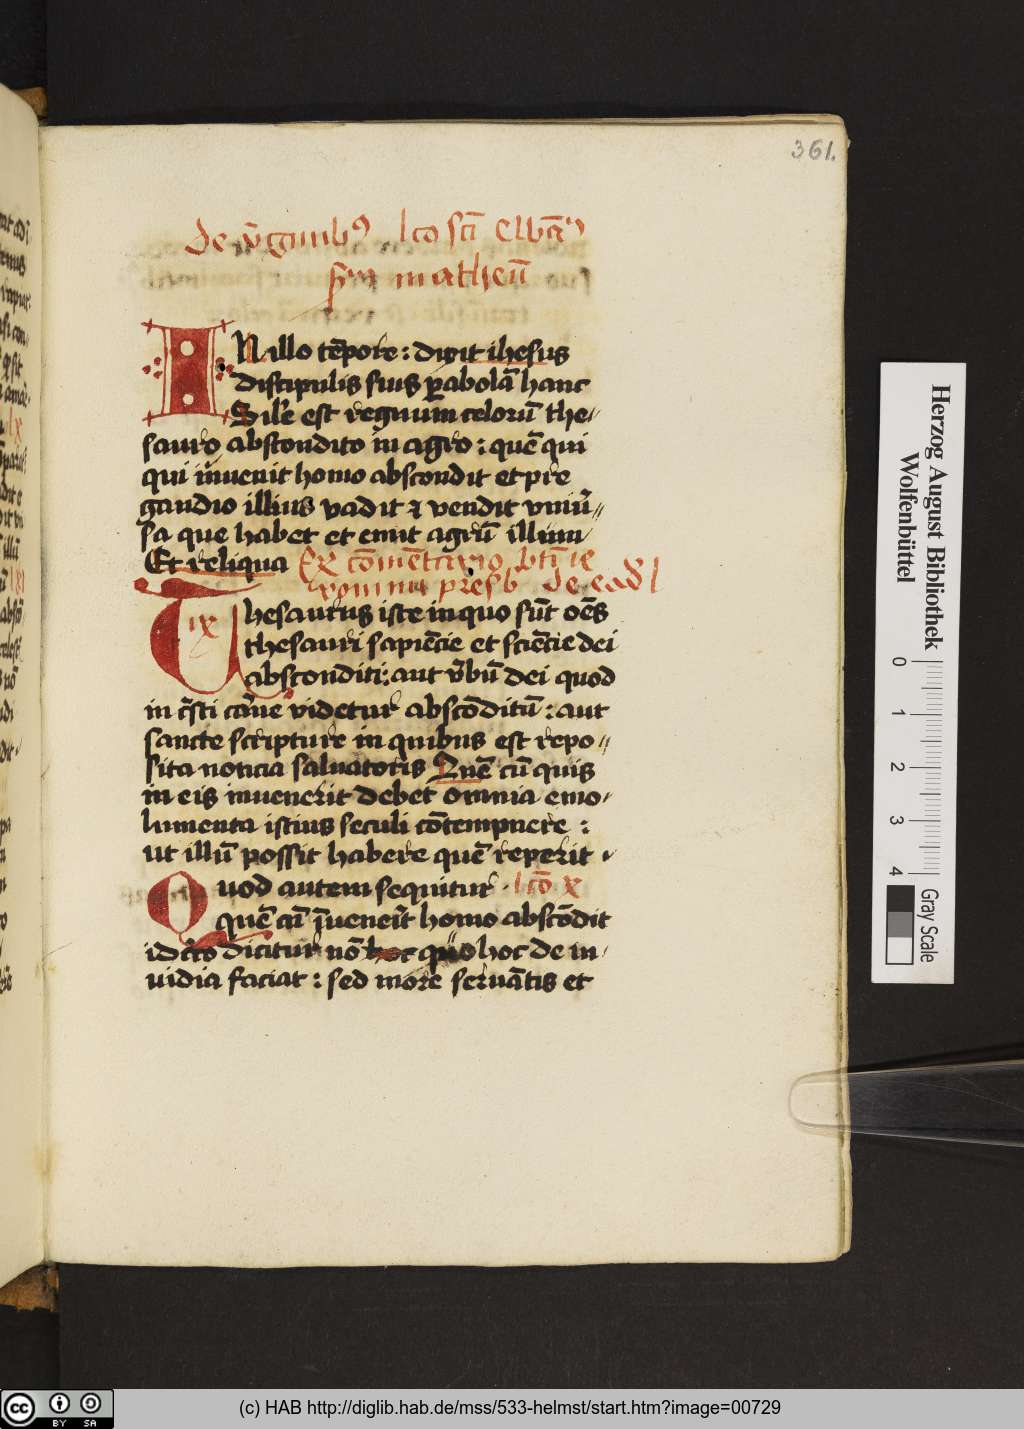 361.
de v̄ginib⁹ lco scī Ewāg̃
s̄m matheū
IN illo tēpore: dixit ihesus
discipulis suis ꝑabolā hanc
Sil'e est regnum celorū the-
sauro abscondito in agro: quē qui
qui invenit homo abscondit et pre
gaudio illius vadit ⁊ vendit vniū̃
sa que habet et emit agrū illum
Et reliqua Ex cōmētario bt̄i ie
ronimi presb de eadē l
Thesaurus iste in quo sūt oēs
IX
thesauri sapiēcie et sciēcie dei
absconditi: aut v̄bū dei quod
in cr̄sti carne videtur abscōditū: aut
sancte scripture in quibus est repo-
sita noticia salvatoris Quē cū quis
in eis invenerit debet omnia emo-
lumenta istius seculi cōtempnere:
ut illū possit habere quē reperit.
Quod autem sequitur. lcō x
quē cū īveneīt homo abscōdit
idcīco dicitur nō hoc quo hoc de in-
vidia faciat: sed more servātis et
Herzog August Bibliothek
Wolfenbüttel
0
1
2
3
4
Gray Scale
cc
BY SA
(c) HAB http://diglib.hab.de/mss/533-helmst/start.htm?image=00729